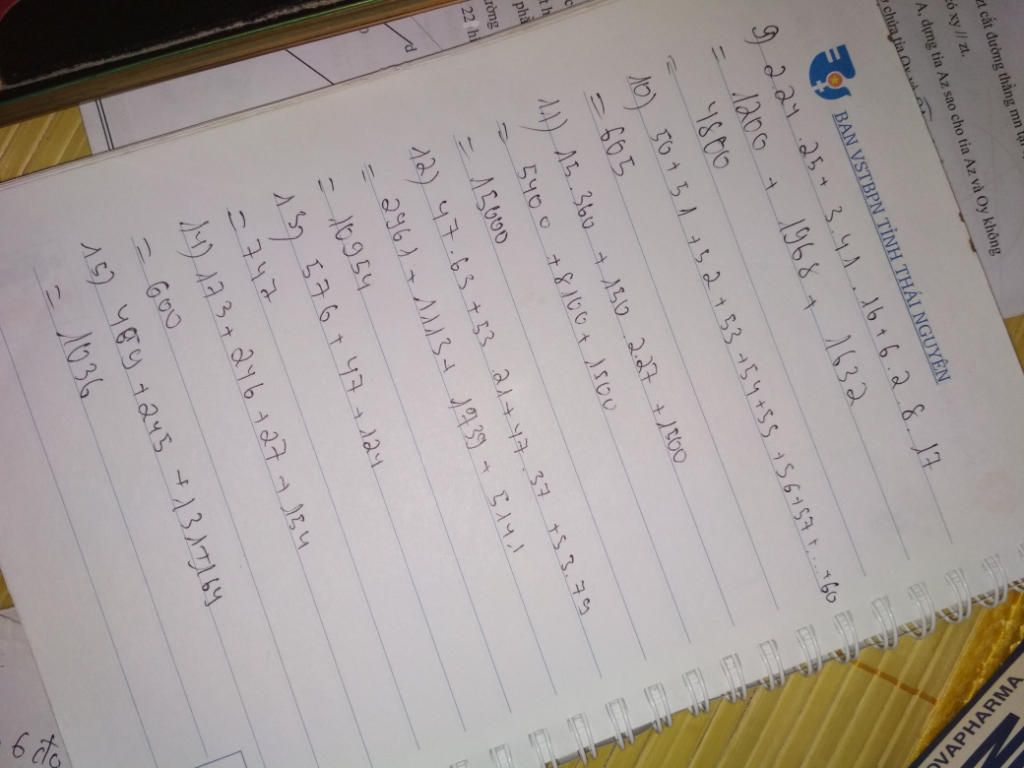 BAN VSTBPN TỈNH THÁI NGUYÊN
9) 2.24.25 + 3.41.16 + 6.2.8.17
= 1200 + 1968 + 1632
= 4800
10) 50 + 51 + 52 + 53 + 54 + 55 + 56 + 57 + ... + 60
= 605
11) 15.360 + 150.2.27 + 1500
= 5400 + 8100 + 1500
= 15000
12) 47.63 + 53.21 + 47.37 + 53.79
= 2961 + 1113 + 1739 + 5141
= 10954
13) 576 + 47 + 124
= 747
14) 173 + 246 + 27 + 154
= 600
15) 489 + 245 + 131 + 169
= 1036
22
zt cắt đường thẳng mn tại
có xy // zt.
A, dựng tia Az sao cho tia Az và Oy không
chứa tia
OVAPHARMA
6 đo